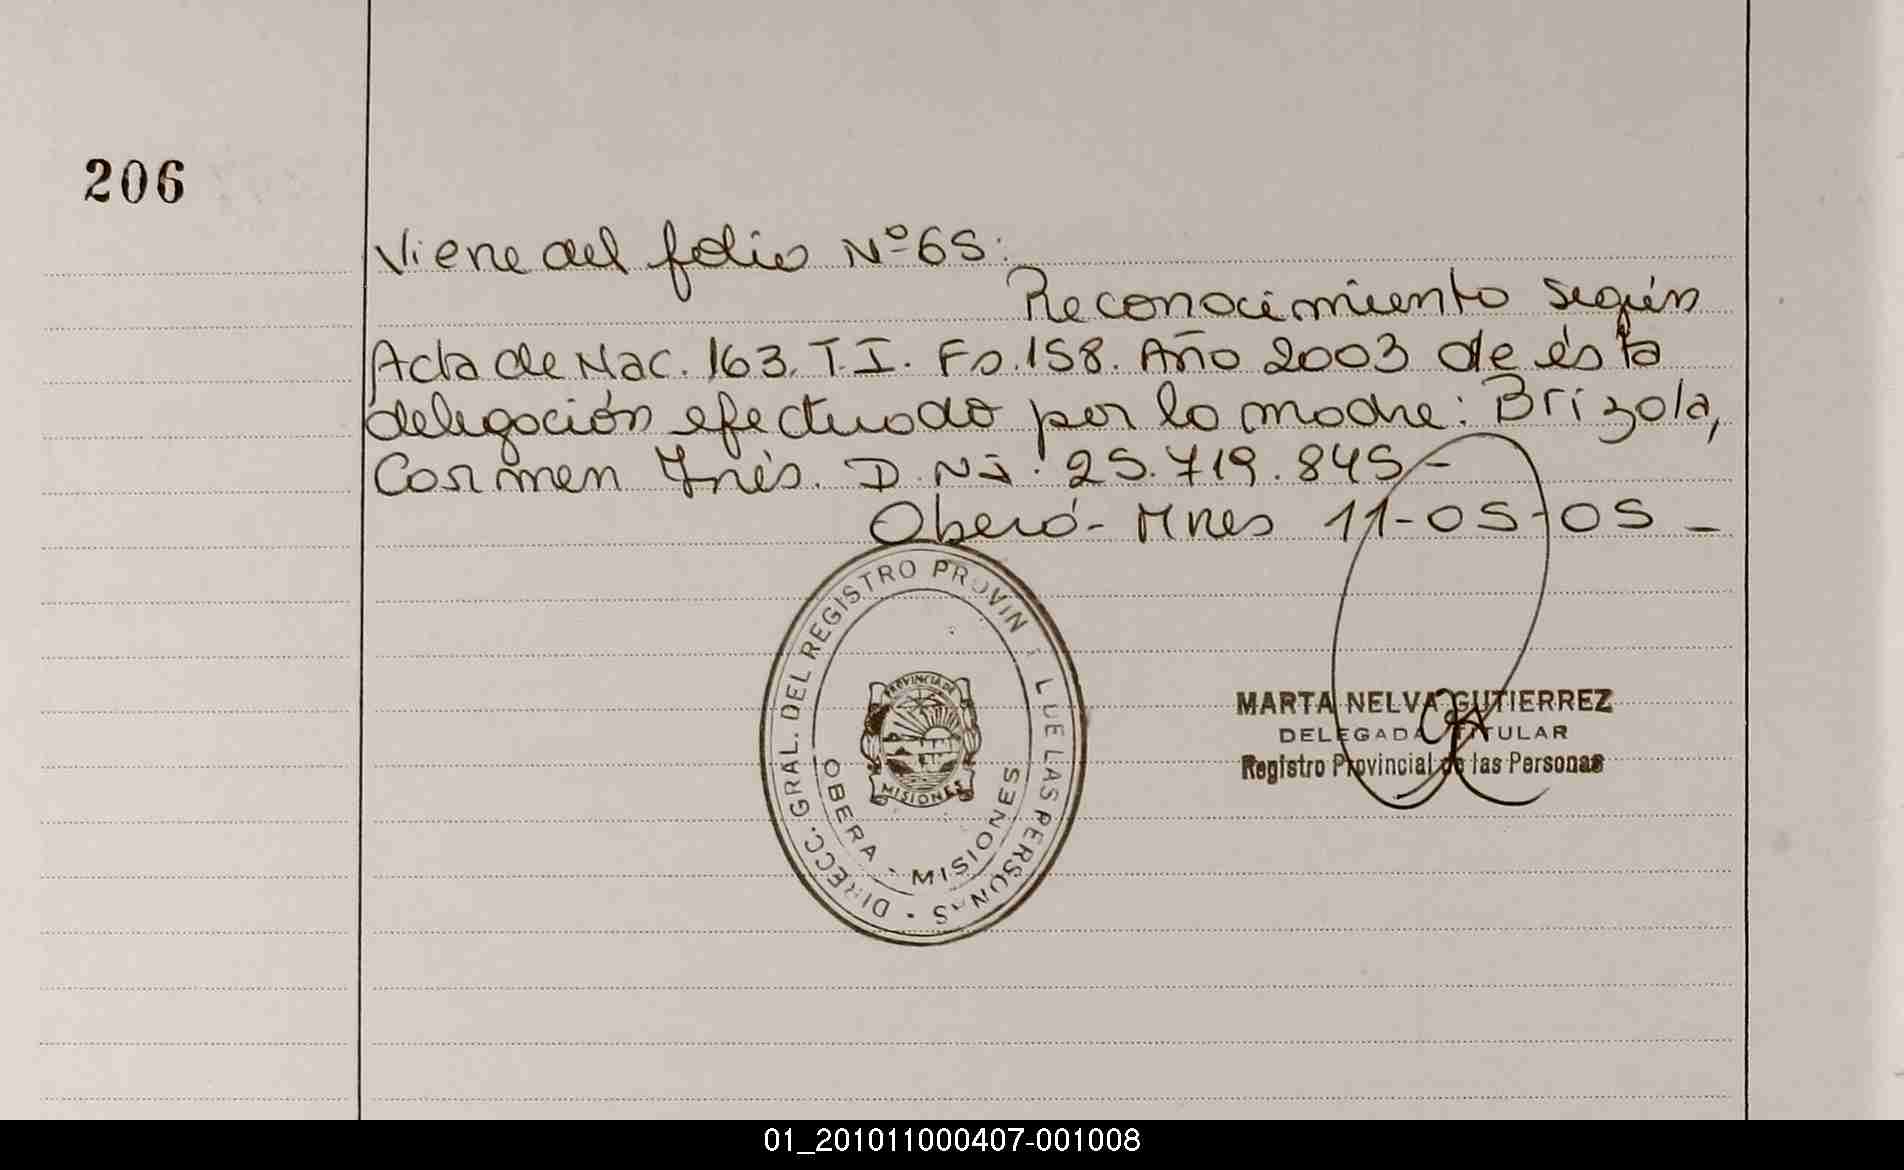 206
Viene del folio Nº 65:
Reconocimiento según
Acta de Nac. 163. T.I. Fo. 158. Año 2003 de ésta
delegación efectuado por la madre: Brizola,
Carmen Inés. D.N.I. 25.719.845-
Oberá- Mnes 11-05-05 -
DIRECC. GRAL. DEL REGISTRO PROVIN L DE LAS PERSONAS
PROVINCIA DE
MISIONES
OBERA - MISIONES
MARTA NELVA GUTIERREZ
DELEGADA TITULAR
Registro Provincial de las Personas
01_201011000407-001008